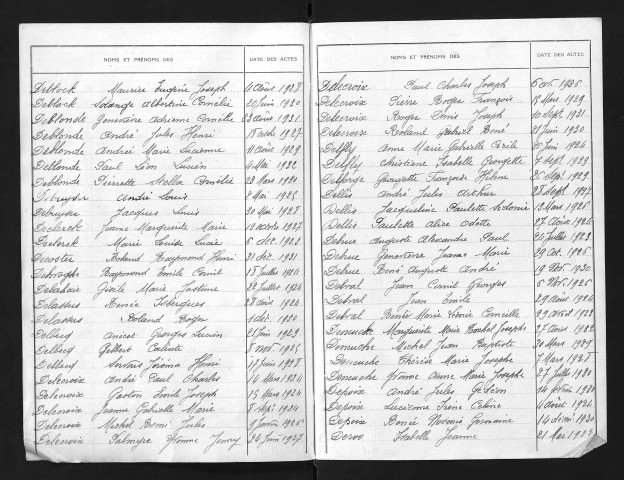 NOMS ET PRÉNOMS DES DATE DES ACTES
Deblock Maurice Eugène Joseph 4 août 1928
Deblock Solange Albertine Cornélie 20 juin 1930
Deblonde Geneviève Adrienne Cornélie 23 août 1931
Deblonde André Jules Henri 18 octe 1927
Deblonde Andrée Marie Lucienne 11 août 1929
Deblonde Paul Léon Lucien 4 Mai 1932
Deblonde Pierrette Stella Cornélie 23 Mars 1930
Debruyser André Louis 8 Mai 1925
Debruyser Jacques Louis 30 Mai 1928
Declerck Jeanne Marguerite Marie 18 octe 1927
Declerck Marie Louise Lucie 6 déc. 1928
Decoster Roland Raymond Henri 31 déc. 1931
Raymond Emile Cornil 18 Juillet 1924
Delahaie Gisèle Marie Justine 22 Juillet 1924
Delassus Renée Isbergues 28 août 1924
Delassus Roland Roger 1 déc. 1930
Delbecq Anicet Georges Lucien 21 Juin 1929
Delbecq Gilbert 8 nov. 1925
Delbecq Servais Jérôme Henri 17 Juin 1928
Delecroix André Paul Charles 14 Mars 1924
Delecroix Gaston Emile Joseph 15 Mars 1924
Delecroix Jeanne Gabrielle Marie 8 Sept 1924
Delecroix Michel Rémi Jules 9 Janvier 1926
Delecroix Palmyre Yvonne Jenny 24 Juin 1927
NOMS ET PRÉNOMS DES DATE DES ACTES
Delecroix Paul Charles Joseph 6 oct. 1926
Delecroix Pierre Roger François 18 Mars 1929
Delecroix Roger Denis Joseph 10 Sept. 1931
Delecroix Roland Gabriel René 21 Juin 1930
Delfly Anne Marie Gabrielle Cécile 25 Juin 1924
Delfly Christiane Isabelle Georgette 7 Sept. 1929
Georgette Françoise Hélène 26 Sept. 1929
Dellis André Jules Arthur 28 Sept. 1922
Dellis Jacqueline Paulette Sidonie 13 Mars 1926
Dellis Paulette Alice Odette 27 Août 1924
Delrue Auguste Alexandre Paul 24 Juillet 1923
Delrue Geneviève Jeanne Marie 29 Oct. 1926
Delrue René Auguste André 19 Nov. 1930
Delval Jean Cornil Georges 6 Nov. 1926
Delval Jean Emile 29 Août 1924
Delval Renée Marie Léonie Corneille 29 Avril 1928
Demeuche Marguerite Marie Rachel Josèphe 27 Août 1922
Demeuche Michel Jean Baptiste 30 Mars 1929
Demeuche Thérèse Marie Josèphe 7 Mars 1928
Demeuche Yvonne Anne Marie Josèphe 27 Juillet 1930
Depoix André Jules Gédéon 1928
Depoix Lucienne Irène Céline 4 Août 1924
Depoix Renée Noémie Germaine 14 1930
Isabelle Jeanne 21 Mai 1922